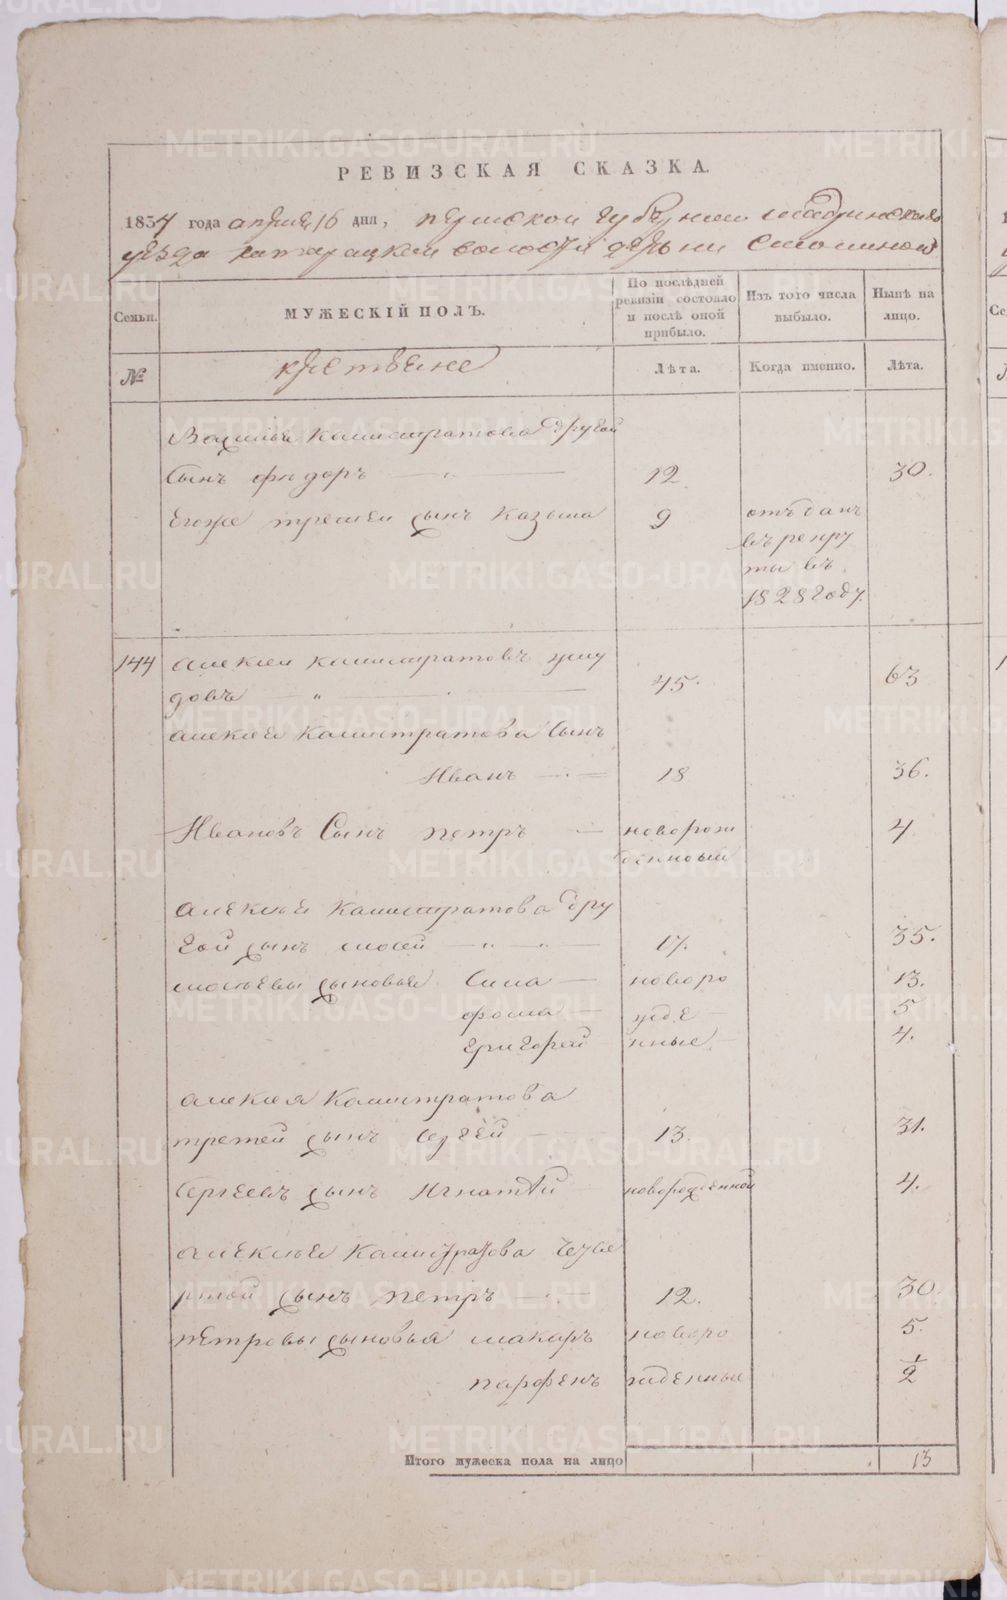 РЕВИЗСКАЯ СКАЗКА.
1834 года апреля 16 дня, пермской губернии шадринскаго
уѣзда катарацкой волости дерѣвни
Семьи. МУЖЕСКІЙ ПОЛЪ. По послѣдней ревизіи состояло и послѣ оной прибыло. Изъ того числа выбыло. Нынѣ на лицо.
№ крестьяне Лѣта. Когда именно. Лѣта.
Калистратова другой
сынъ фѣдоръ 12 30.
Егоже третей сынъ Казьма 9 отъданъ
въ рекру
ты въ
1828 году.
144 алексей калистратовъ
довъ " 45. 63
алексея Калистратова Сынъ
Иванъ 18 36.
Ивановъ Сынъ петръ новорож 4
денный
алексея Калистратова дру
гой сынъ мосей 17. 35.
мосѣевы сыновья Сила новоро 13.
фома жде 5
григорей нные 4.
алексея Калистратова
третей сынъ Сергей 13. 31.
Сергеевъ сынъ игнатей новорожденной 4.
алексея Калистратова четве
ртой сынъ петръ 12. 30.
петровы сыновья макаръ новоро 5.
парфенъ жденные 1/2
Итого мужеска пола на лицо 13
METRIKI.GASO-URAL.RU